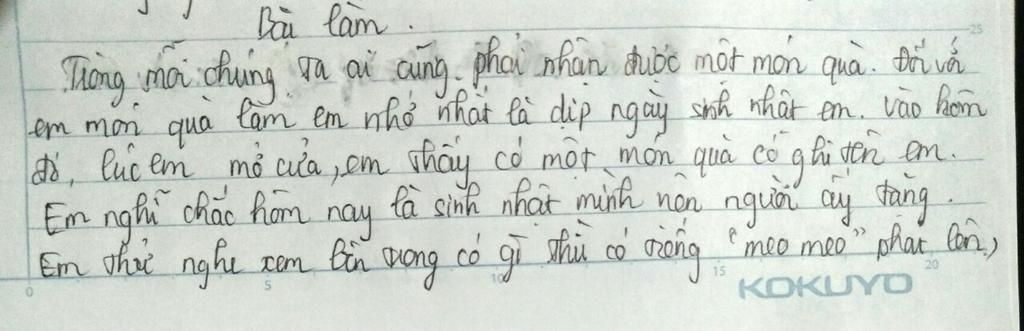 Bài làm.
Trong mỗi chúng ta ai cũng phải nhận được một món quà. Đối với
em món quà làm em nhớ nhất là dịp ngày sinh nhật em. Vào hôm
đó, lúc em mở cửa, em thấy có một món quà có ghi tên em.
Em nghĩ chắc hôm nay là sinh nhật mình nên người ấy tặng.
Em thử nghe xem bên trong có gì thì có tiếng "meo meo" phát lên,
0 5 10 15 20 25
KOKUYO